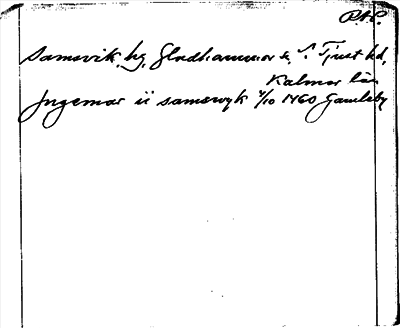 R.A.P.
Samsvik, by, Gladhammar s., S. Tjust hd,
Kalmar län
Jngemar ii samswyk 4/10 1460 Gamleby